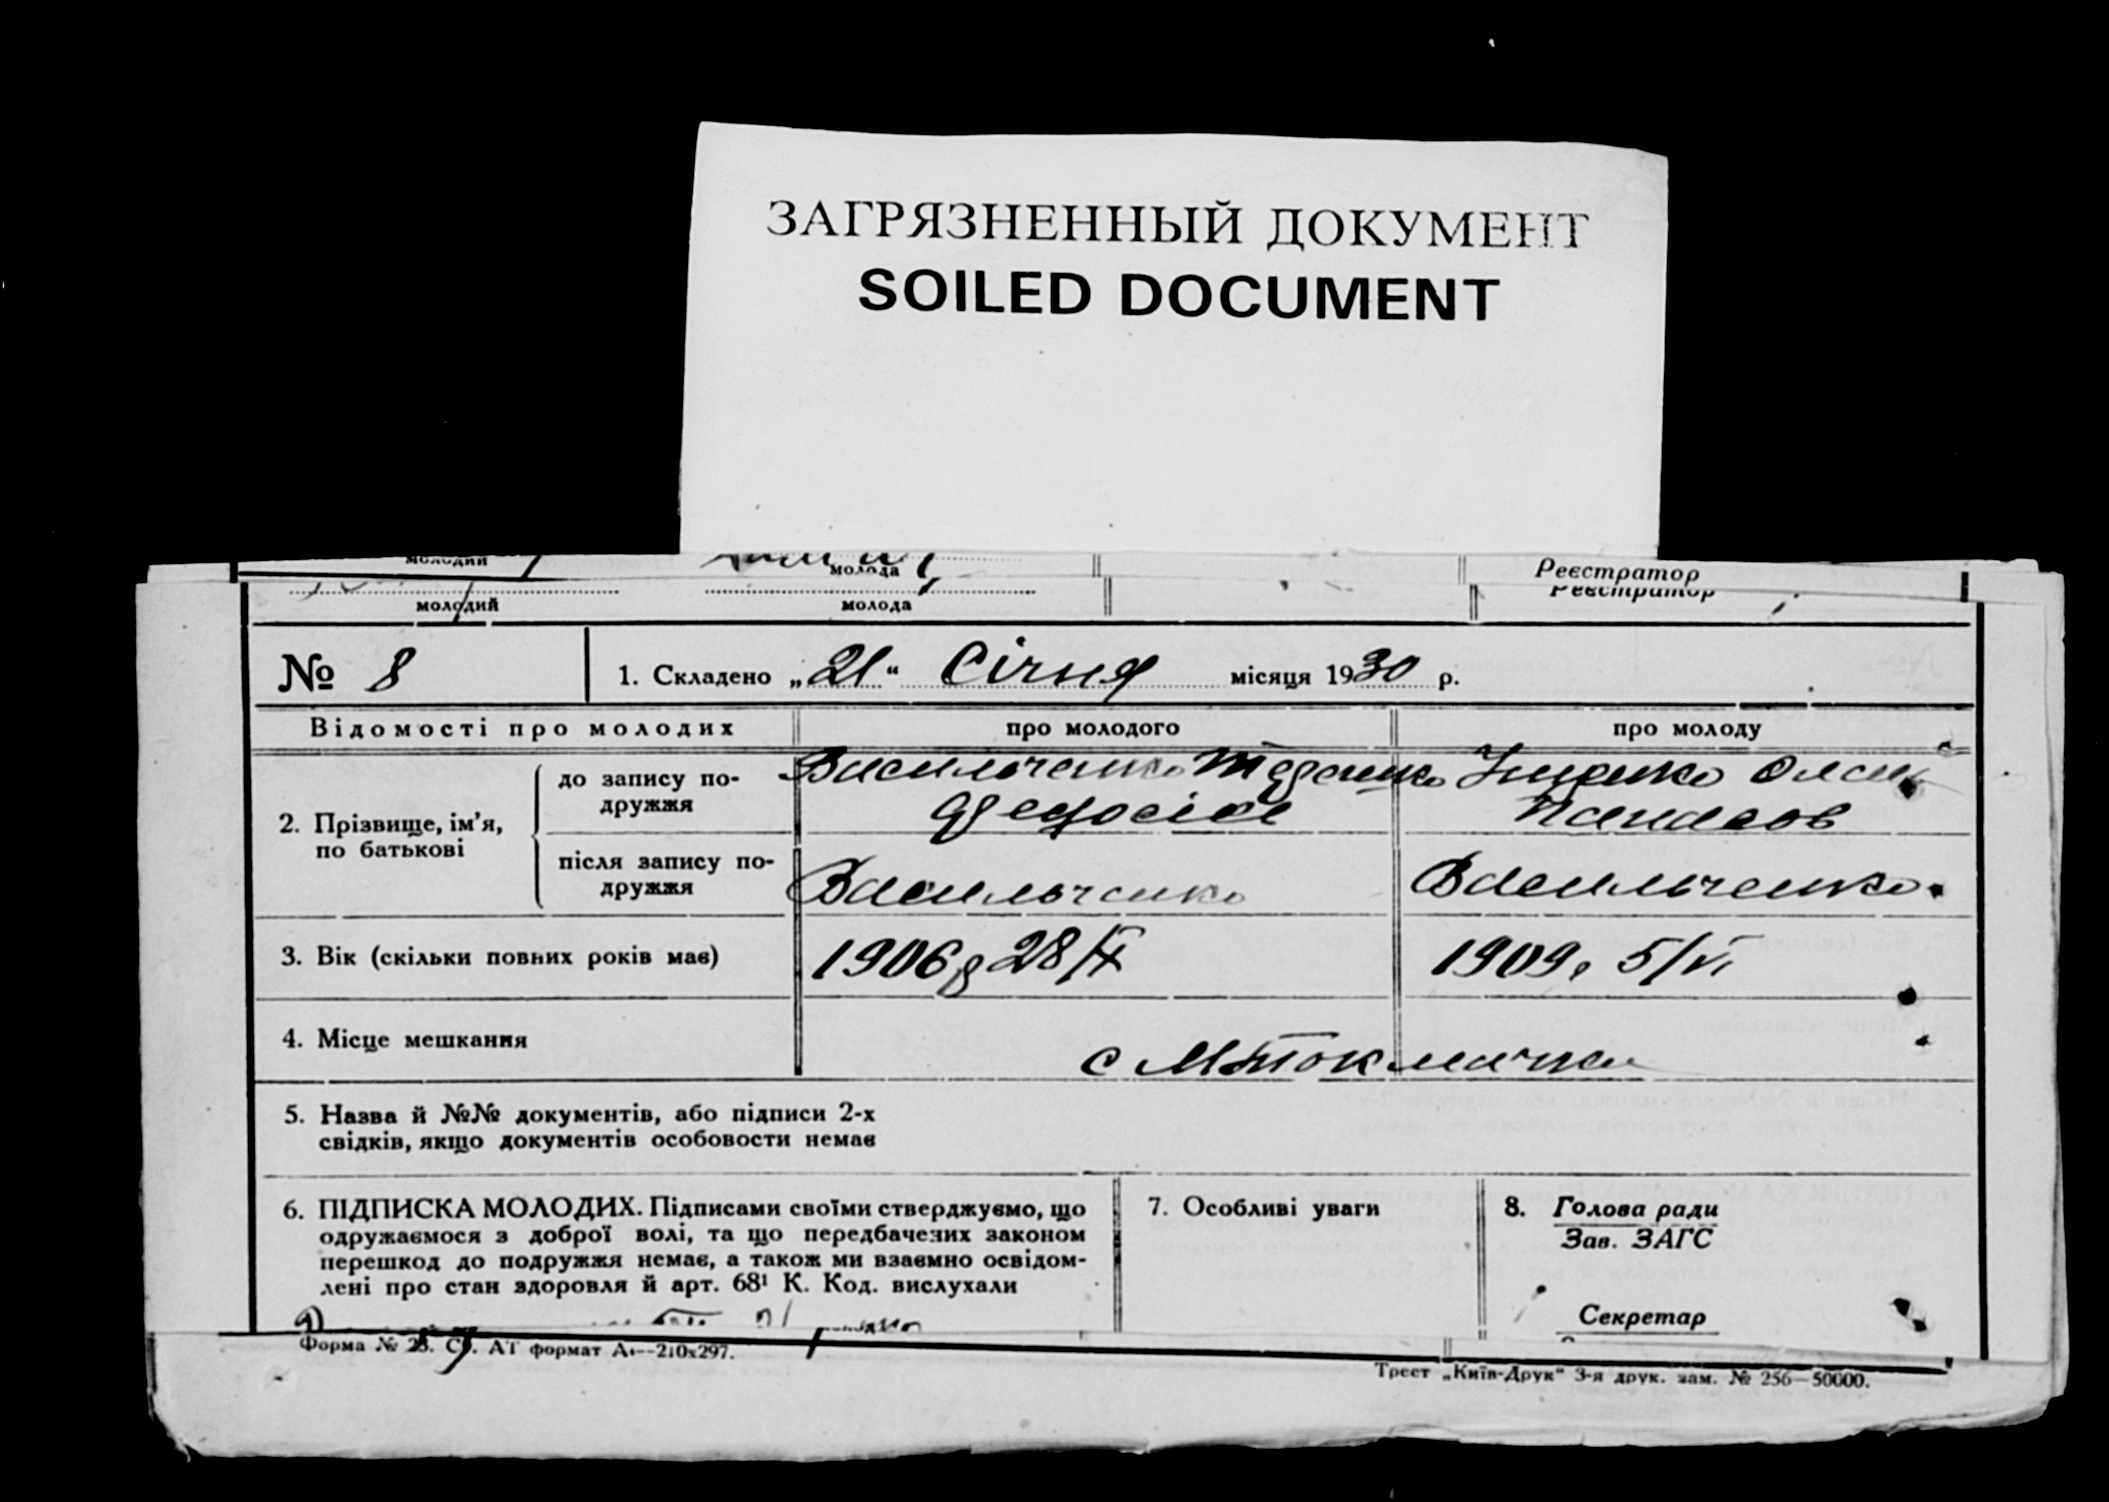 ЗАГРЯЗНЕННЫЙ ДОКУМЕНТ
SOILED DOCUMENT
молодий молода Реєстратор
молодий молода Реєстратор
№ 8 1. Складено „21“ Січня місяця 1930 р.
Відомості про молодих про молодого про молоду
2. Прізвище, ім'я, по батькові
до запису подружжя Васильченко Панасов
після запису подружжя Васильченко Васильченко
3. Вік (скільки повних років має) 1906 р 28/IX 1909 р 5/VI
4. Місце мешкання с М Токмачка
5. Назва й №№ документів, або підписи 2-х
свідків, якщо документів особовости немає
6. ПІДПИСКА МОЛОДИХ. Підписами своїми стверджуємо, що
одружаємося з доброї волі, та що передбачених законом
перешкод до подружжя немає, а також ми взаємно освідом-
лені про стан здоровля й арт. 68¹ К. Код. вислухали
7. Особливі уваги
8. Голова ради
Зав. ЗАГС
Секретар
Форма № 28. Ст. АТ формат А₄—210х297.
Трест „Київ-Друк“ 3-я друк. зам. № 256—50000.